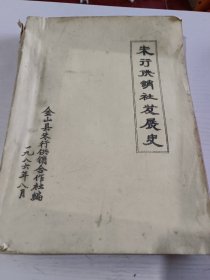 朱行供销社发展史
金山县朱行供销合作社编
一九八六年八月